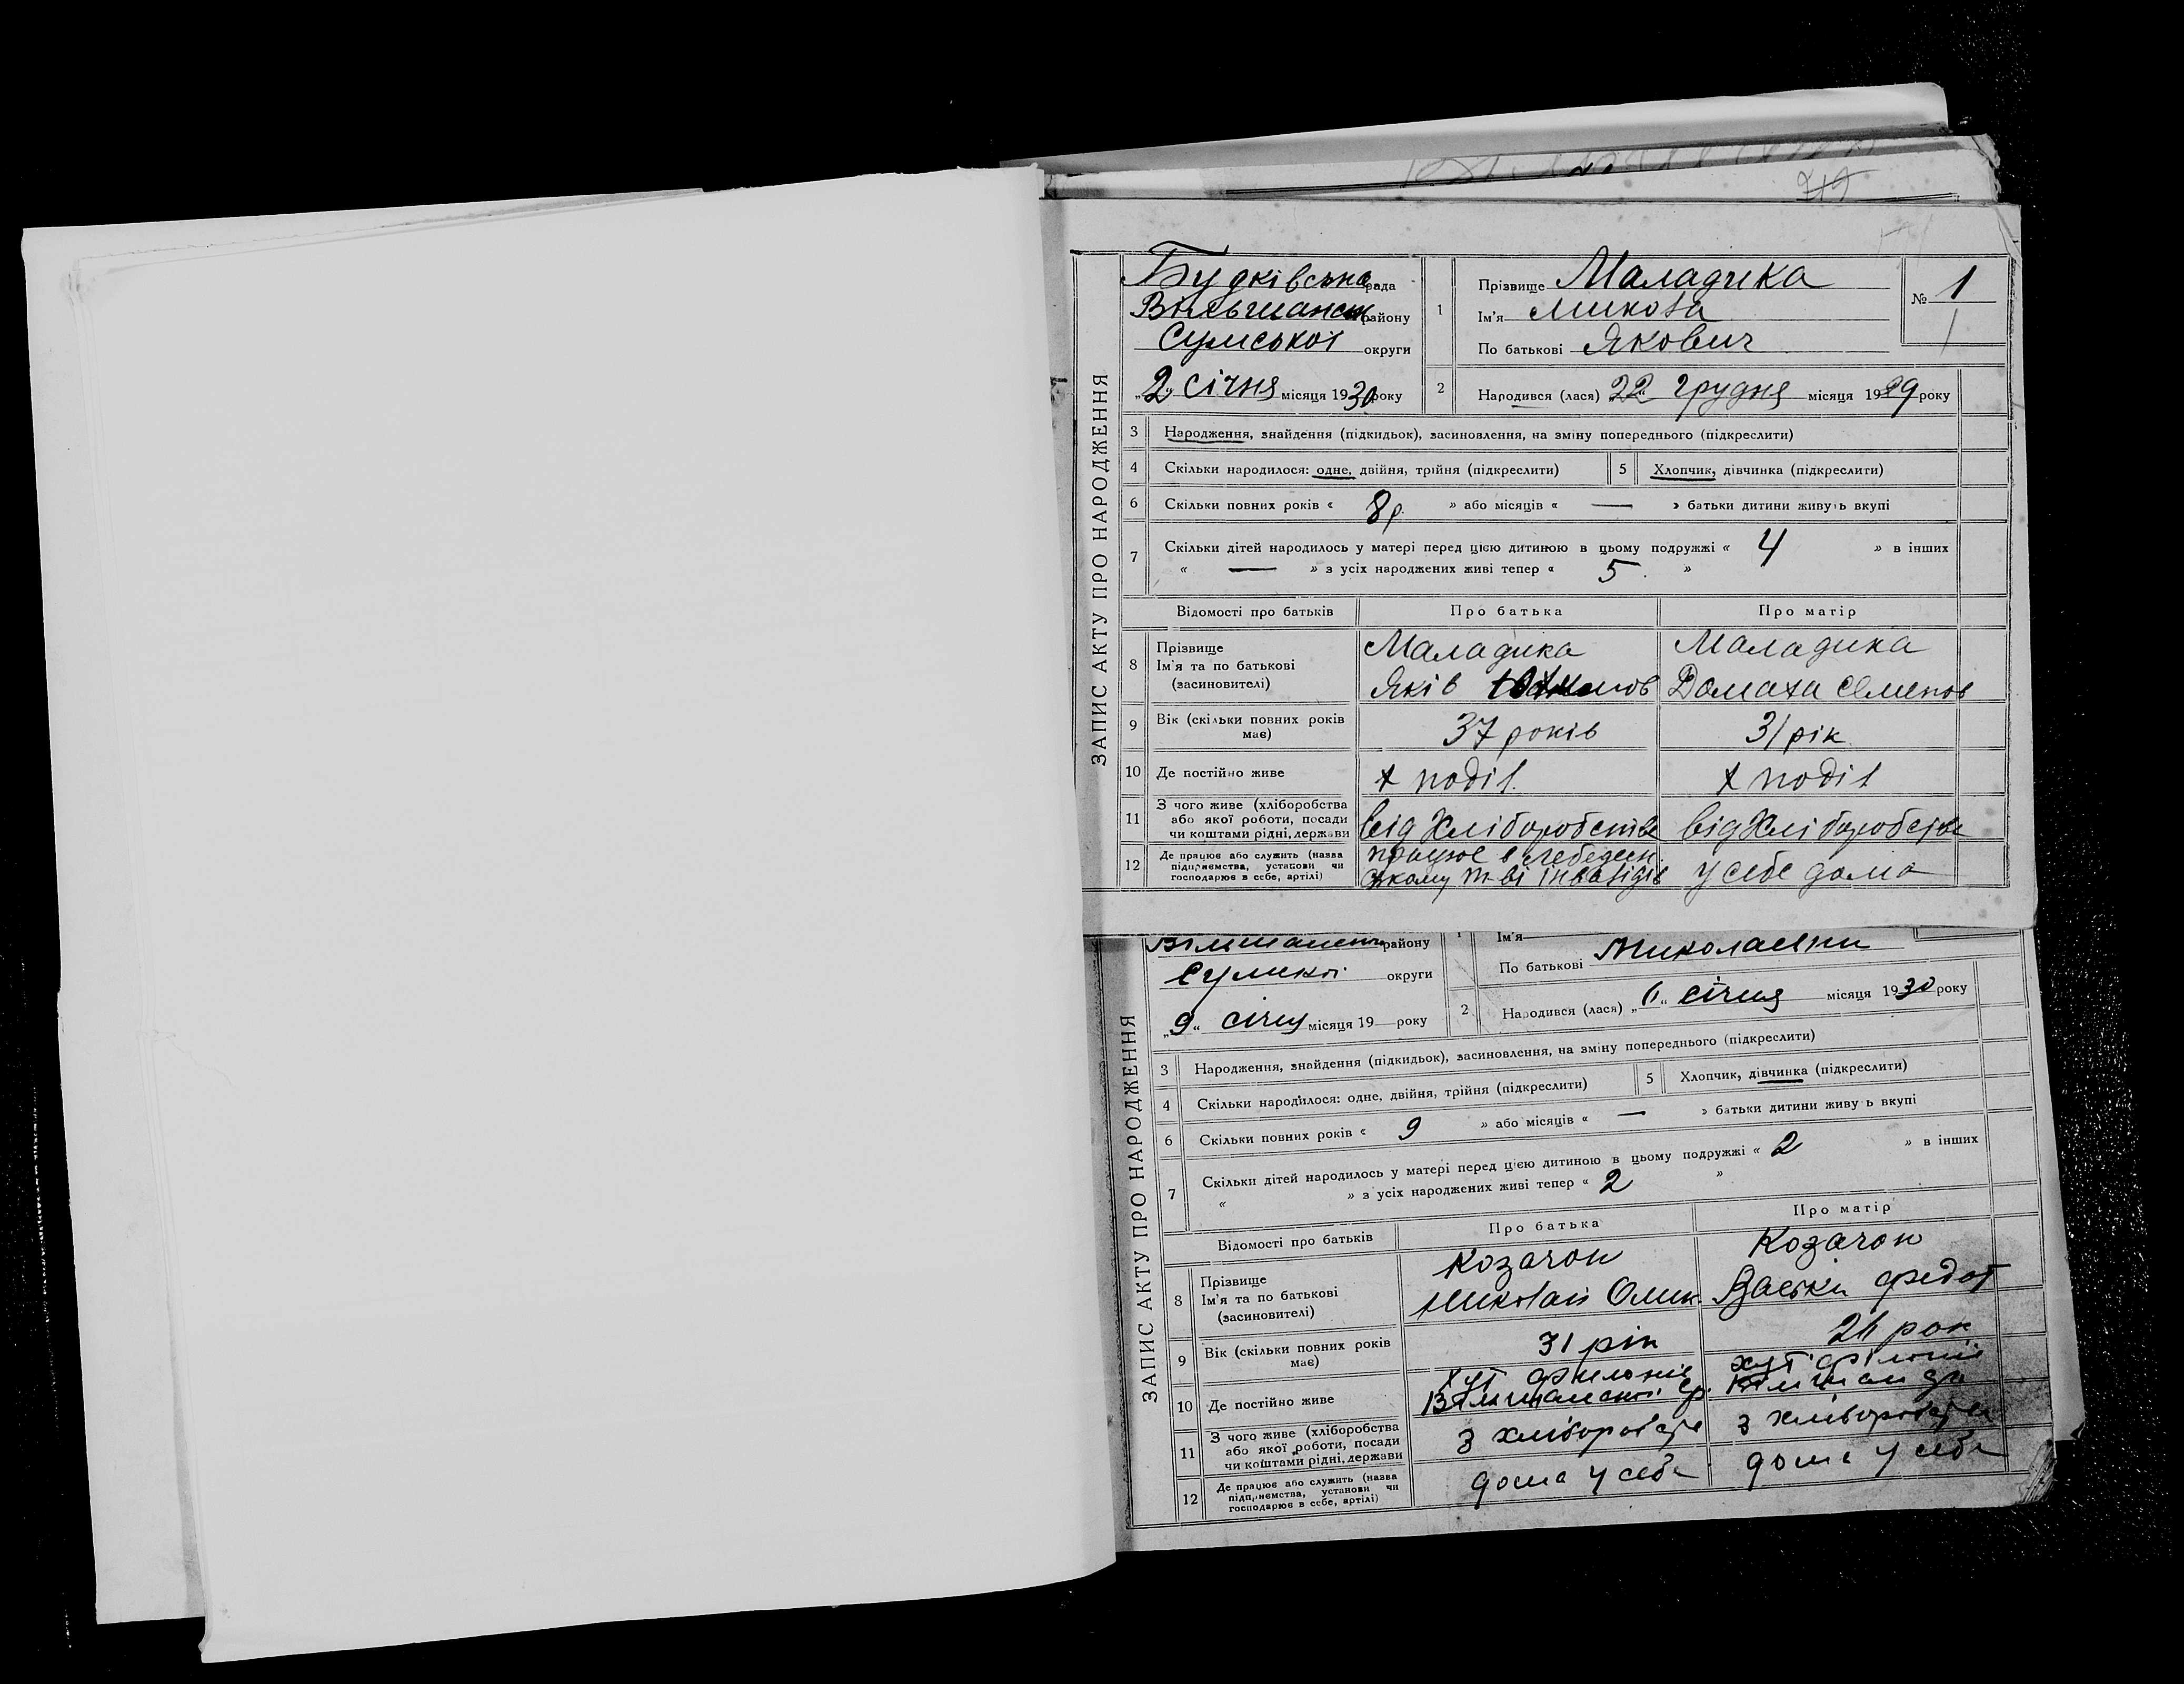 ЗАПИС АКТУ ПРО НАРОДЖЕННЯ
Будківська рада
Вільшанськ району
Сумської округи
„2“ січня місяця 1930 року
1
Прізвище Маладика
Ім'я Микола
По батькові Якович
№ 1
2
Народився (лася) „22“ грудня місяця 1929 року
3 Народження, знайдення (підкидьок), засиновлення, на зміну попереднього (підкреслити)
4 Скільки народилося: одне, двійня, трійня (підкреслити)
5 Хлопчик, дівчинка (підкреслити)
6 Скільки повних років « 8 р. » або місяців « — » батьки дитини живуть вкупі
7 Скільки дітей народилось у матері перед цією дитиною в цьому подружжі « 4 » в інших
« — » з усіх народжених живі тепер « 5. »
Відомості про батьків Про батька Про матір
8
Прізвище Маладика Маладика
Ім'я та по батькові
(засиновителі) Яків Домаха Семенов
9 Вік (скільки повних років
має) 37 років 31 рік
10 Де постійно живе х поділ. х поділ
11
З чого живе (хліборобства
або якої роботи, посади
чи коштами рідні, держави від Хліборобства від Хліборобства
12
Де працює або служить (назва
підприємства, установи чи
господарює в себе, артілі)
працює в Лебедин
ському т-ві інвалідів у себе дома
ЗАПИС АКТУ ПРО НАРОДЖЕННЯ
району
округи
„9“ січня місяця 19 — року
1
Ім'я
По батькові Миколаєвни
2
Народився (лася) „6“ січня місяця 1930 року
3 Народження, знайдення (підкидьок), засиновлення, на зміну попереднього (підкреслити)
4 Скільки народилося: одне, двійня, трійня (підкреслити)
5 Хлопчик, дівчинка (підкреслити)
6 Скільки повних років « 9 » або місяців « — » батьки дитини живу ь вкупі
7 Скільки дітей народилось у матері перед цією дитиною в цьому подружжі « 2 » в інших
« » з усіх народжених живі тепер « 2 »
Відомості про батьків Про батька Про матір
8
Прізвище Козачок Козачок
Ім'я та по батькові
(засиновителі) Николай Омик. Федот
9 Вік (скільки повних років
має) 31 рік 26 рок
10 Де постійно живе хут хут
11
З чого живе (хліборобства
або якої роботи, посади
чи коштами рідні, держави з хліборобства з хліборобства
12
Де працює або служить (назва
підприємства, установи чи
господарює в себе, артілі) дома у себе дома у себе